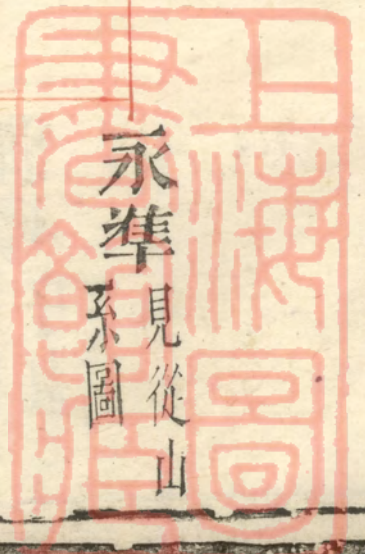 永準
見從山
系圖
上海圖
書館藏